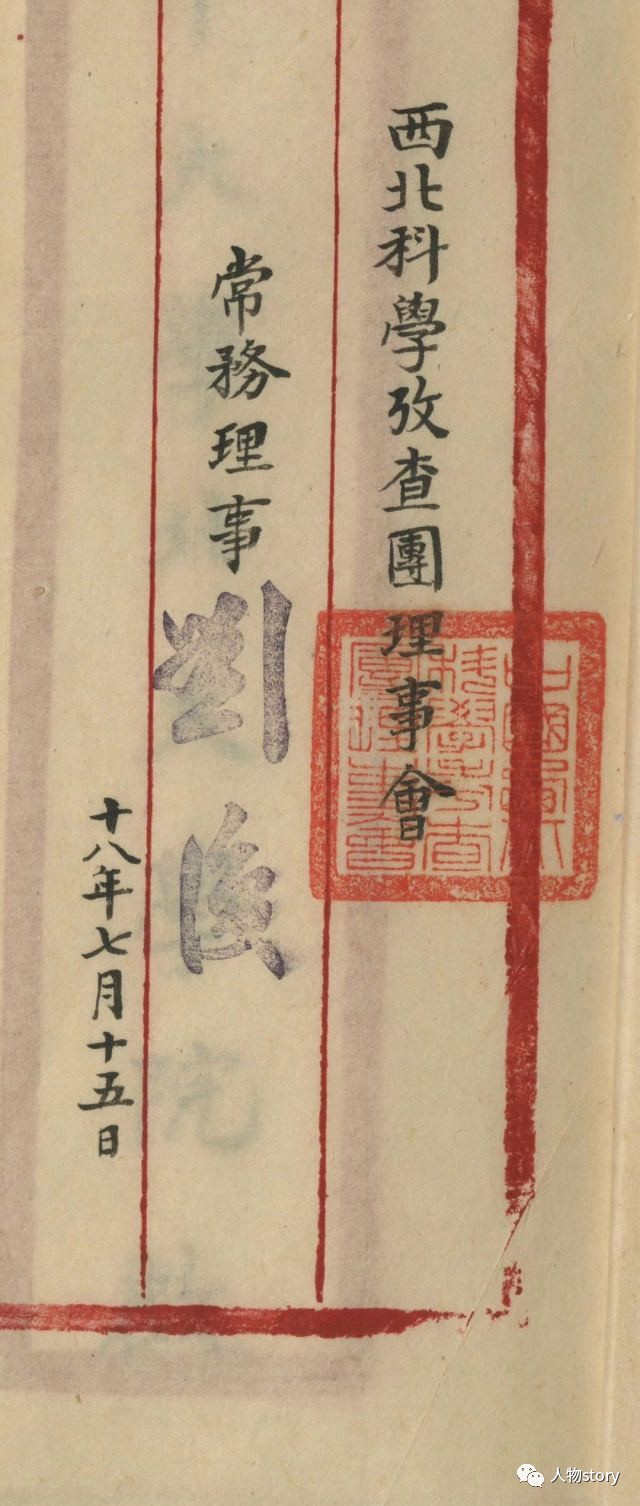 西北科學攷查團理事會
中國西北
科學考查
團理事會
常務理事 劉復
十八年七月十五日
人物story